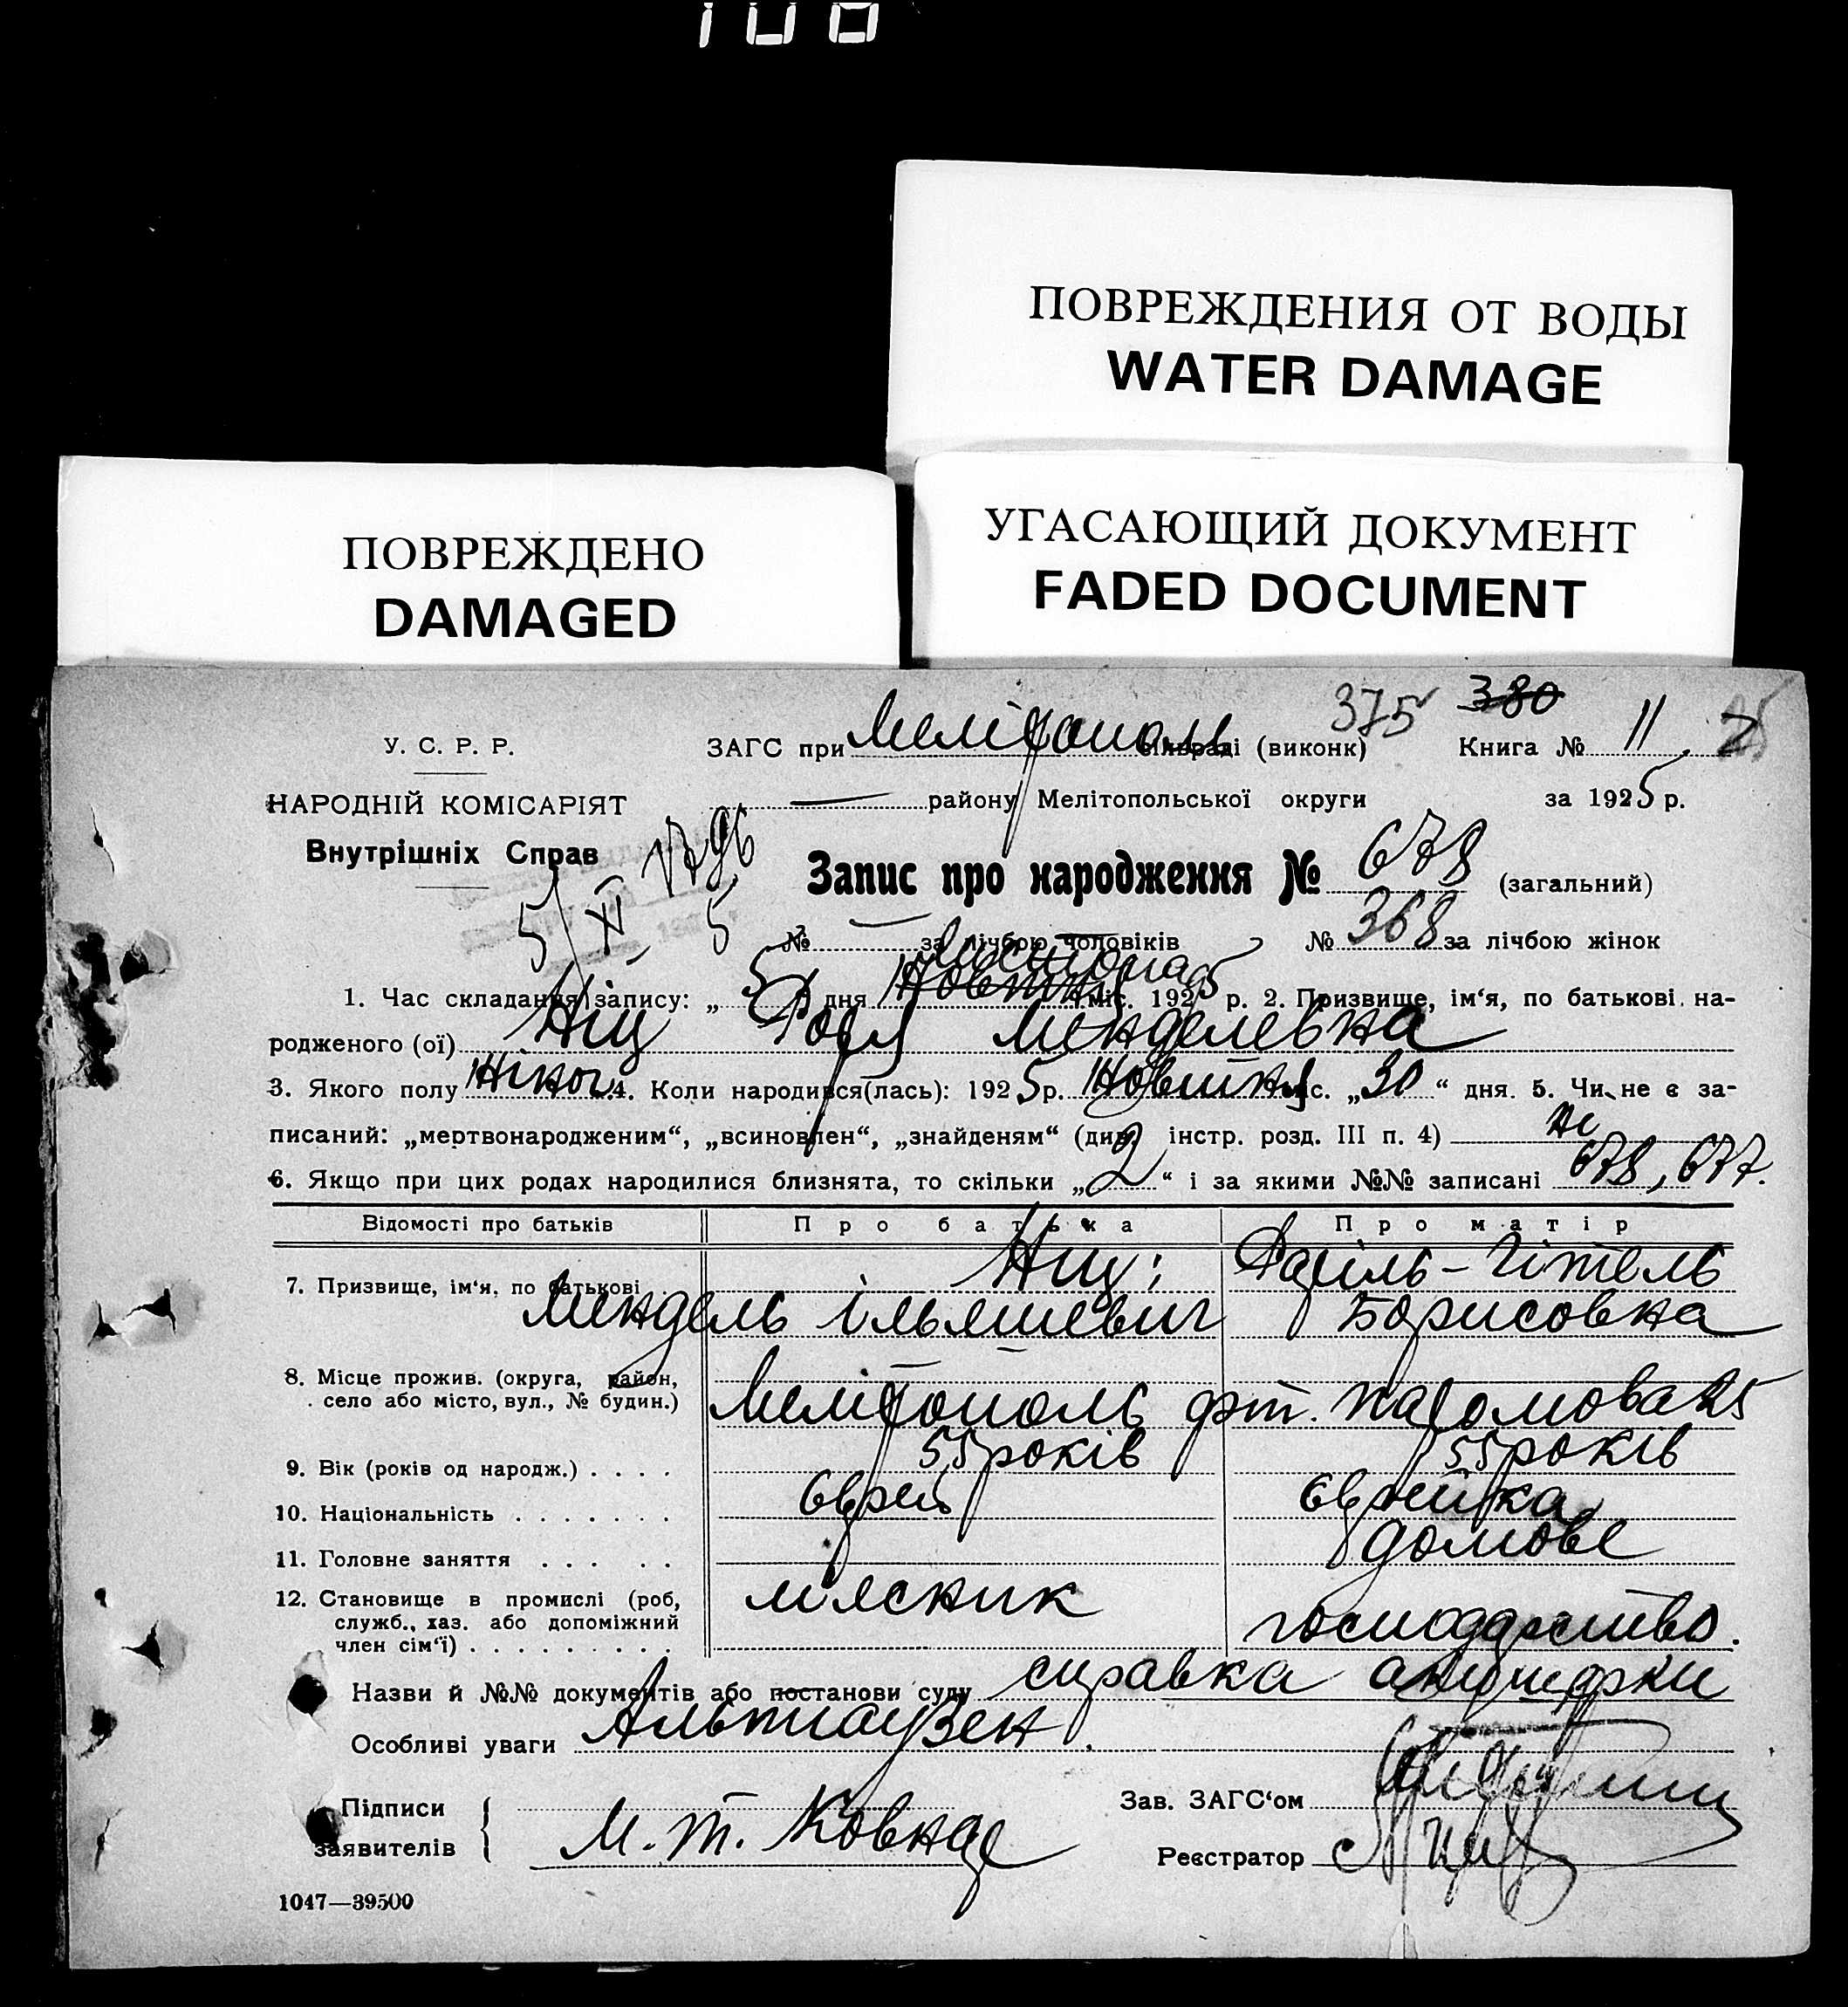 100
ПОВРЕЖДЕНИЯ ОТ ВОДЫ
WATER DAMAGE
ПОВРЕЖДЕНО
DAMAGED
УГАСАЮЩИЙ ДОКУМЕНТ
FADED DOCUMENT
375 380
У. С. Р. Р.
ЗАГС при Мелітополь сільраді (виконк) Книга № 11
НАРОДНІЙ КОМІСАРІЯТ
— району Мелітопольської округи за 1925 р.
Внутрішніх Справ
Запис про народження № 678 (загальний)
5/XI 5
№ — за лічбою чоловіків № 368 за лічбою жінок
Листопад
1. Час складання запису: „ 5 дня Новтня міс. 1925 р. 2. Призвище, ім‘я, по батькові на-
родженого (ої) Ніц Роза Менделевна
3. Якого полу Жіноч. 4. Коли народився(лась): 1925 р. Жовтня міс. „ 30 “ дня. 5. Чи не є за-
писаний: „мертвонародженим“, „всиновлен“, „знайденям“ (див. інстр. розд. III п. 4) Не
6. Якщо при цих родах народилися близнята, то скільки „ 2 “ і за якими №№ записані 678, 677.
Відомості про батьків Про батька Про матір
7. Призвище, ім‘я, по батькові Ніц: Рахіль-Гітель
Мендель Ільяшевич Борисовна
8. Місце прожив. (округа, район,
село або місто, вул., № будин.) Мелітополь 25
9. Вік (років од народж.) . . . . 55 років 55 років
10. Національність . . . . . . . Єврей Єврейка
11. Головне заняття . . . . . домове
12. Становище в промислі (роб,
служб., хаз. або допоміжний
член сім‘ї) . . . . . . . . . мясник господарство.
Назви й №№ документів або постанови суду справка акушерки
Особливі уваги Альтгаузен.
Підписи
заявителів М. Т. Ковнер
Зав. ЗАГС‘ом
Реєстратор
1047—39500